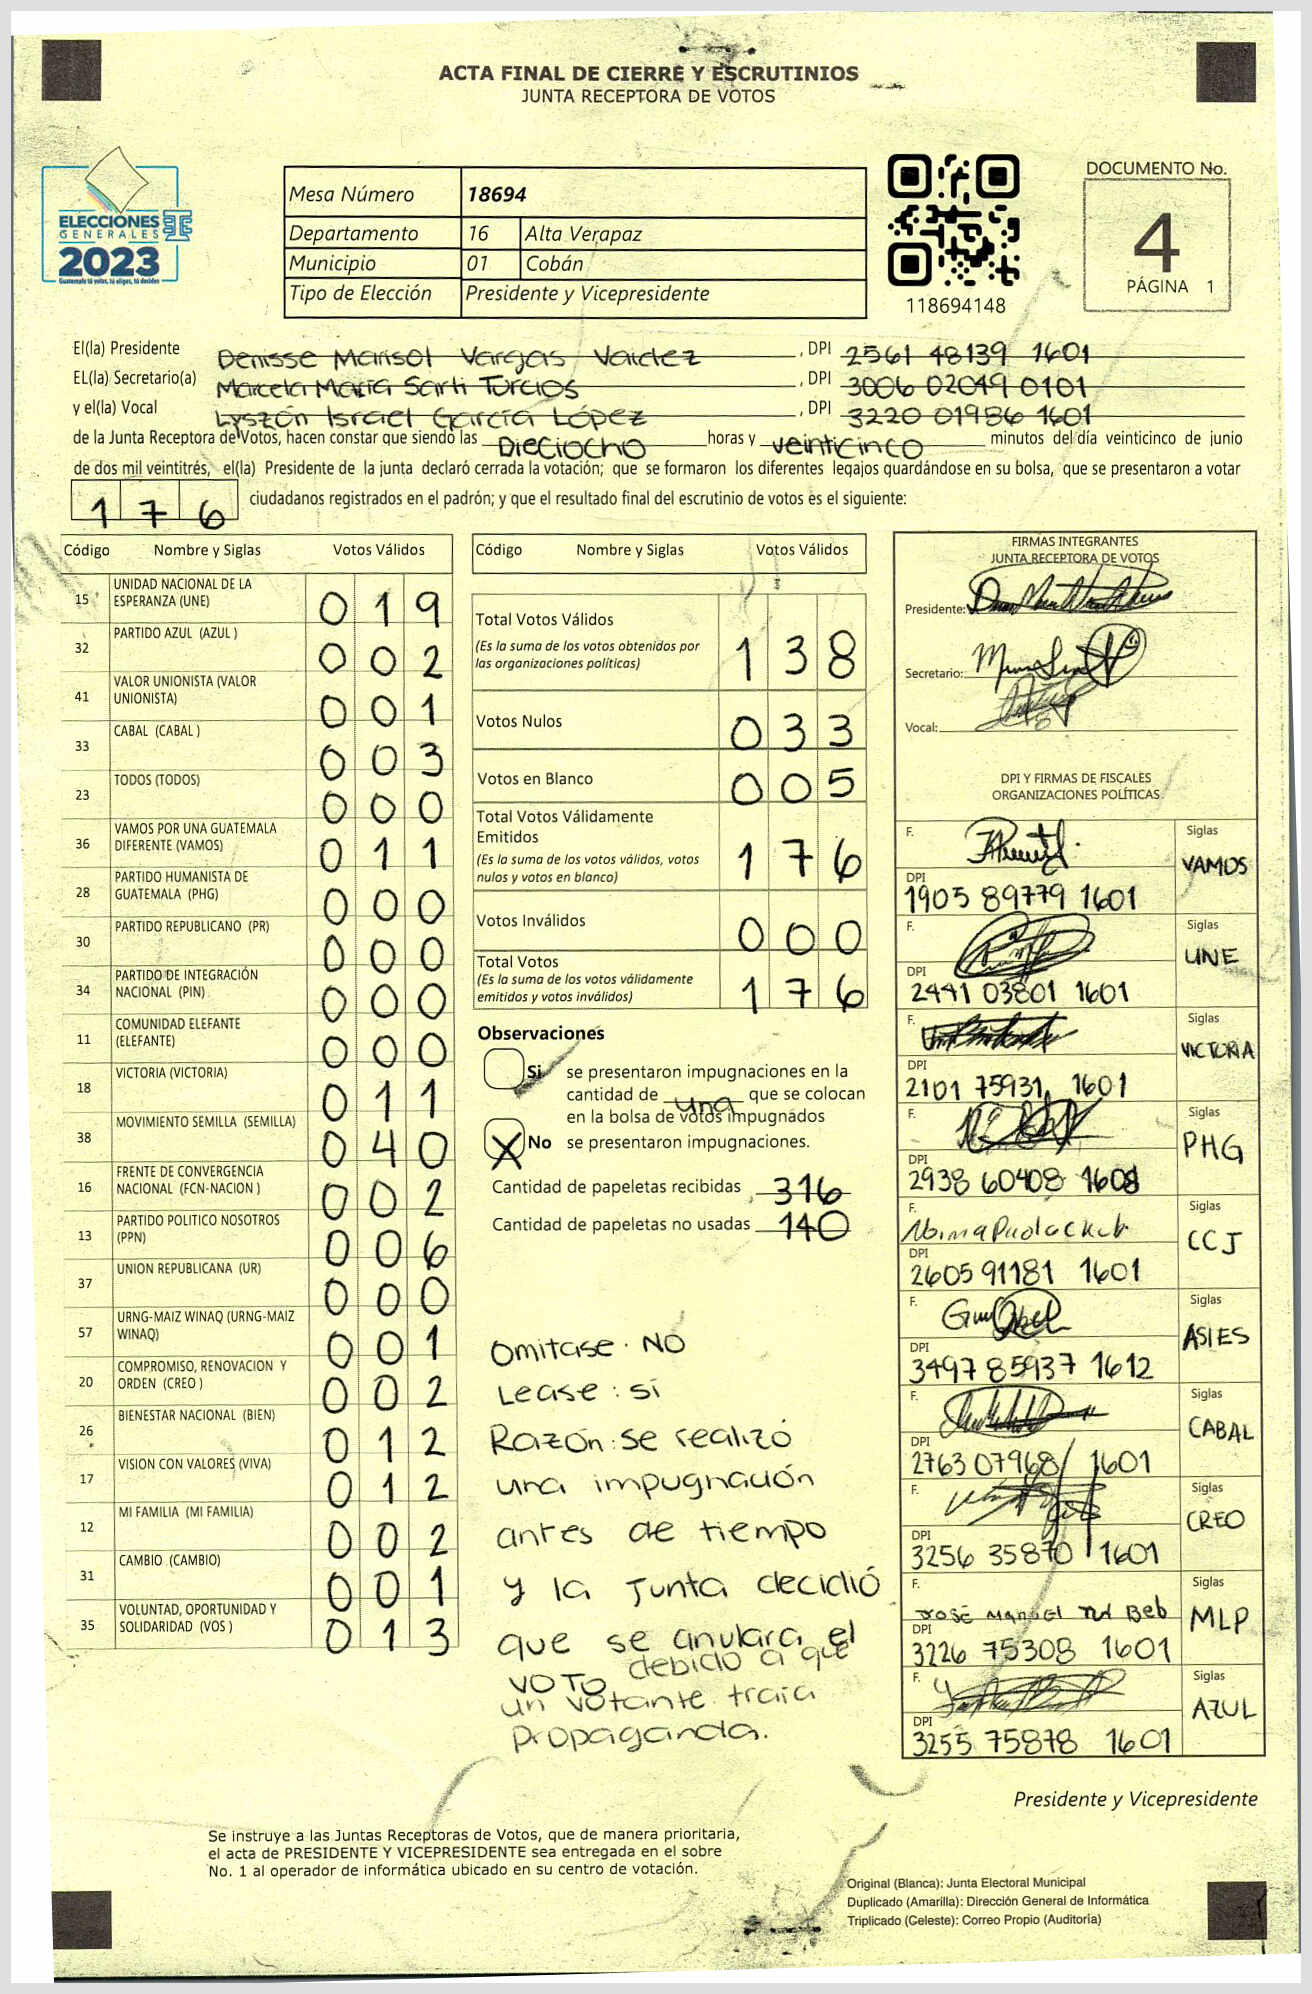 ACTA FINAL DE CIERRE Y ESCRUTINIOS
JUNTA RECEPTORA DE VOTOS
ELECCIONES
GENERALES
2023
Guatemala tú votas, tú eliges, tú decides
Mesa Número 18694
Departamento 16 Alta Verapaz
Municipio 01 Cobán
Tipo de Elección Presidente y Vicepresidente
118694148
DOCUMENTO No.
4
PÁGINA 1
El(la) Presidente Denisse Marisol Vargas Valdez, DPI 2561 48139 1601
EL(la) Secretario(a) Marcela María Sarti Turcios, DPI 3006 02049 0101
y el(la) Vocal Lyszón Israel García López, DPI 3220 01986 1601
de la Junta Receptora de Votos, hacen constar que siendo las Dieciocho horas y veinticinco minutos del día veinticinco de junio
de dos mil veintitrés, el(la) Presidente de la junta declaró cerrada la votación; que se formaron los diferentes legajos guardándose en su bolsa, que se presentaron a votar
176 ciudadanos registrados en el padrón; y que el resultado final del escrutinio de votos es el siguiente:
Código Nombre y Siglas Votos Válidos
15 UNIDAD NACIONAL DE LA
ESPERANZA (UNE) 019
32 PARTIDO AZUL (AZUL ) 002
41 VALOR UNIONISTA (VALOR
UNIONISTA) 001
33 CABAL (CABAL ) 003
23 TODOS (TODOS) 000
36 VAMOS POR UNA GUATEMALA
DIFERENTE (VAMOS) 011
28 PARTIDO HUMANISTA DE
GUATEMALA (PHG) 000
30 PARTIDO REPUBLICANO (PR) 000
34 PARTIDO DE INTEGRACIÓN
NACIONAL (PIN) 000
11 COMUNIDAD ELEFANTE
(ELEFANTE) 000
18 VICTORIA (VICTORIA) 011
38 MOVIMIENTO SEMILLA (SEMILLA) 040
16 FRENTE DE CONVERGENCIA
NACIONAL (FCN-NACION ) 002
13 PARTIDO POLITICO NOSOTROS
(PPN) 006
37 UNION REPUBLICANA (UR) 000
57 URNG-MAIZ WINAQ (URNG-MAIZ
WINAQ) 001
20 COMPROMISO, RENOVACION Y
ORDEN (CREO ) 002
26 BIENESTAR NACIONAL (BIEN) 012
17 VISION CON VALORES (VIVA) 012
12 MI FAMILIA (MI FAMILIA) 002
31 CAMBIO (CAMBIO) 001
35 VOLUNTAD, OPORTUNIDAD Y
SOLIDARIDAD (VOS ) 013
Código Nombre y Siglas Votos Válidos
Total Votos Válidos
(Es la suma de los votos obtenidos por
las organizaciones políticas) 138
Votos Nulos 033
Votos en Blanco 005
Total Votos Válidamente
Emitidos
(Es la suma de los votos válidos, votos
nulos y votos en blanco) 176
Votos Inválidos 000
Total Votos
(Es la suma de los votos válidamente
emitidos y votos inválidos) 176
Observaciones
Si se presentaron impugnaciones en la
cantidad de una que se colocan
en la bolsa de votos impugnados
X No se presentaron impugnaciones.
Cantidad de papeletas recibidas 316
Cantidad de papeletas no usadas 140
Omitase. NO
Lease: si
Razón: se realizó
una impugnación
antes de tiempo
y la Junta decidió
que se anulara el
voto debido a que
un votante traía
propaganda.
FIRMAS INTEGRANTES
JUNTA RECEPTORA DE VOTOS
Presidente:
Secretario:
Vocal:
DPI Y FIRMAS DE FISCALES
ORGANIZACIONES POLÍTICAS
F. Siglas
VAMOS
DPI
1905 89779 1601
F. Siglas
UNE
DPI
2441 03801 1601
F. Siglas
VICTORIA
DPI
2101 75931 1601
F. Siglas
PHG
DPI
2938 60408 1608
F. Siglas
CCJ
DPI
2605 91181 1601
F. Siglas
ASIES
DPI
3497 85937 1612
F. Siglas
CABAL
DPI
2763 07968 1601
F. Siglas
CREO
DPI
3256 35870 1601
F. Siglas
JOSÉ MANUEL Beb MLP
DPI
3226 75308 1601
F. Siglas
AZUL
DPI
3255 75878 1601
Presidente y Vicepresidente
Se instruye a las Juntas Receptoras de Votos, que de manera prioritaria,
el acta de PRESIDENTE Y VICEPRESIDENTE sea entregada en el sobre
No. 1 al operador de informática ubicado en su centro de votación.
Original (Blanca): Junta Electoral Municipal
Duplicado (Amarilla): Dirección General de Informática
Triplicado (Celeste): Correo Propio (Auditoría)